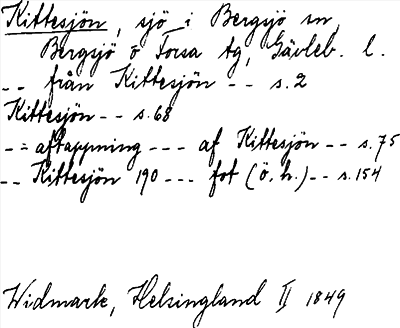 Kittesjön, sjö i Bergsjö sn,
Bergsjö o Forsa tg, Gävleb. l.
-- från Kittesjön -- s.2
Kittesjön -- s.68
-- aftappning --- af Kittesjön -- s.75
-- Kittesjön 190 --- fot (ö.h.) -- s.154
Widmark, Helsingland II 1849